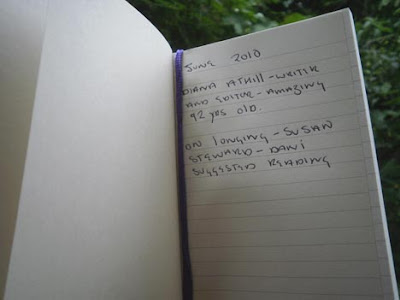 JUNE 2010
DIANA ATHILL-WRITER
AND EDITOR-AMAZING
92 yrs old.
ON LONGING-SUSAN
STEWARD-DANI
SUGGESTED READING